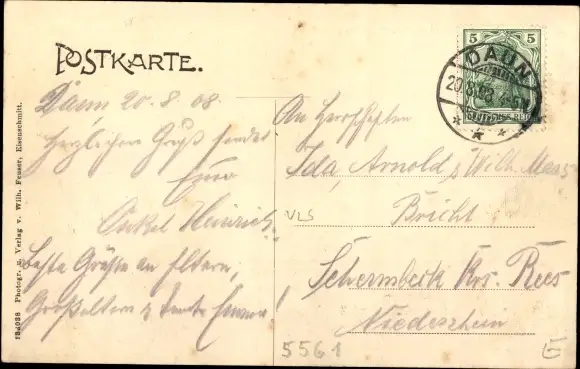 POSTKARTE.
Daun 20.8.08.
Herzlichen Gruß sendet
Euer
Onkel Heinrich.
beste Grüße an Eltern,
Großeltern & Tante Emma
134038 Photogr. u. Verlag v. Wilh. Feuser, Eisenschmitt.
5 5
DAUN
20.8.08
DEUTSCHES REICH
An Herrschaften
Ida, Arnold & Wilh. Maas
VLS
Bricht
Schermbeck Krs. Rees
Niederrhein
5561